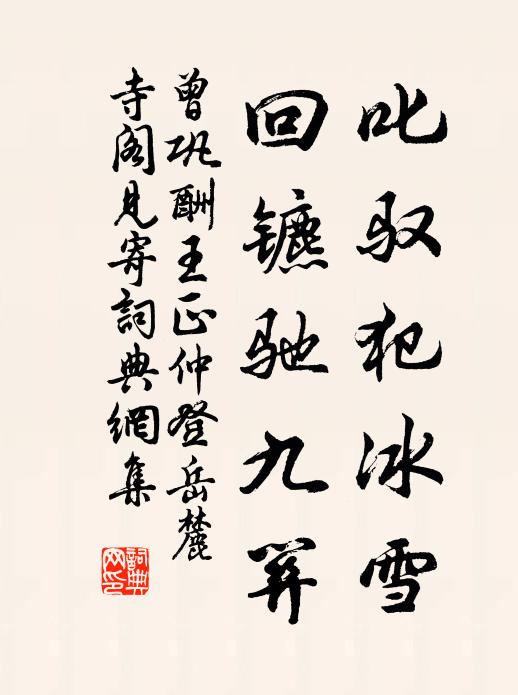 叱驭犯冰雪
回镳驰九羿
曾巩酬王正仲登岳麓
寺阁见寄詞典網集
詞典
网印